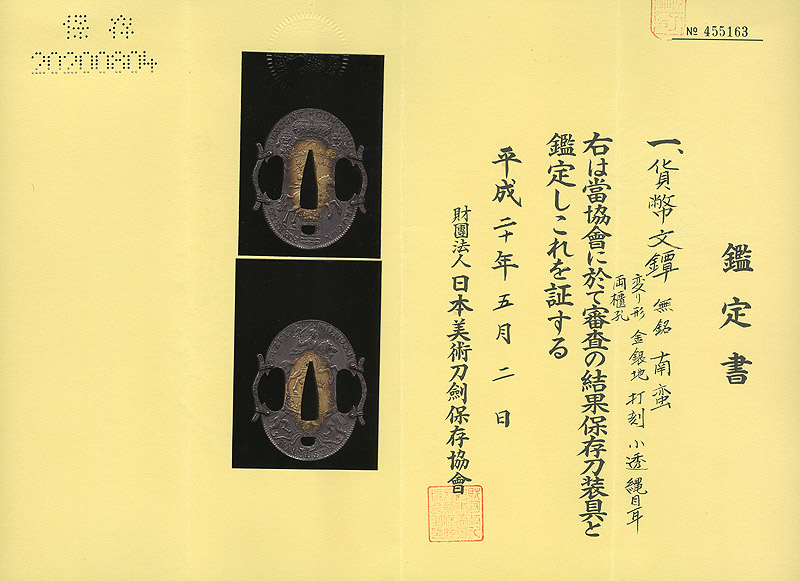 保存
20200804
№ 455163
鑑定書
一、貨幣文鐔 無銘 南蛮
変り形 金銀地 打刻 小透 縄目耳
両櫃孔
右は當協會に於て審査の結果保存刀装具と
鑑定しこれを証する
平成二十年五月二日
財團法人 日本美術刀劍保存協會